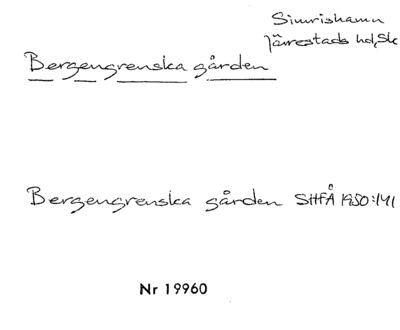 Simrishamn
Järrestads hd, Sk
Bergengrenska gården
Bergengrenska gården SHFÅ 1950:141
Nr 19960